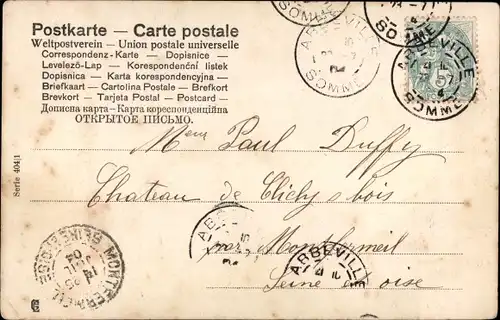 Postkarte — Carte postale
Weltpostverein — Union postale universelle
Correspondenz-Karte — Dopisnice
Levelező-Lap — Korespondenční lístek
Dopisnica — Karta korespondencyjna
Briefkaart — Cartolina Postale — Brefkort
Brevkort — Tarjeta Postal — Postcard —
Дописна карта — Карта кореспонденційна
ОТКРЫТОЕ ПИСЬМО.
SOMME
ABBEVILLE
SOMME
SOMME
ABBEVILLE
SOMME
Mme Paul Duffy
Chateau de Clichy s bois
par Montfermeil
Seine et Oise
ABBEVILLE
MONTFERMEIL
SEINE ET OISE
04
Serie 404/1